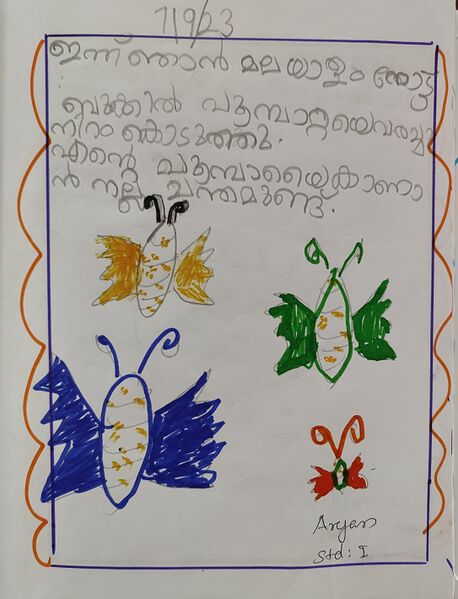 7/9/23
ഇന്ന് ഞാൻ മലയാളം നോട്ട്
ബുക്കിൽ പൂമ്പാറ്റയെവരച്ചു
നിറം കൊടുത്തു.
എൻ്റെ പൂമ്പാറ്റയെകാണാ
ൻ നല്ല ചന്തമുണ്ട്.
Aryan
Std: I